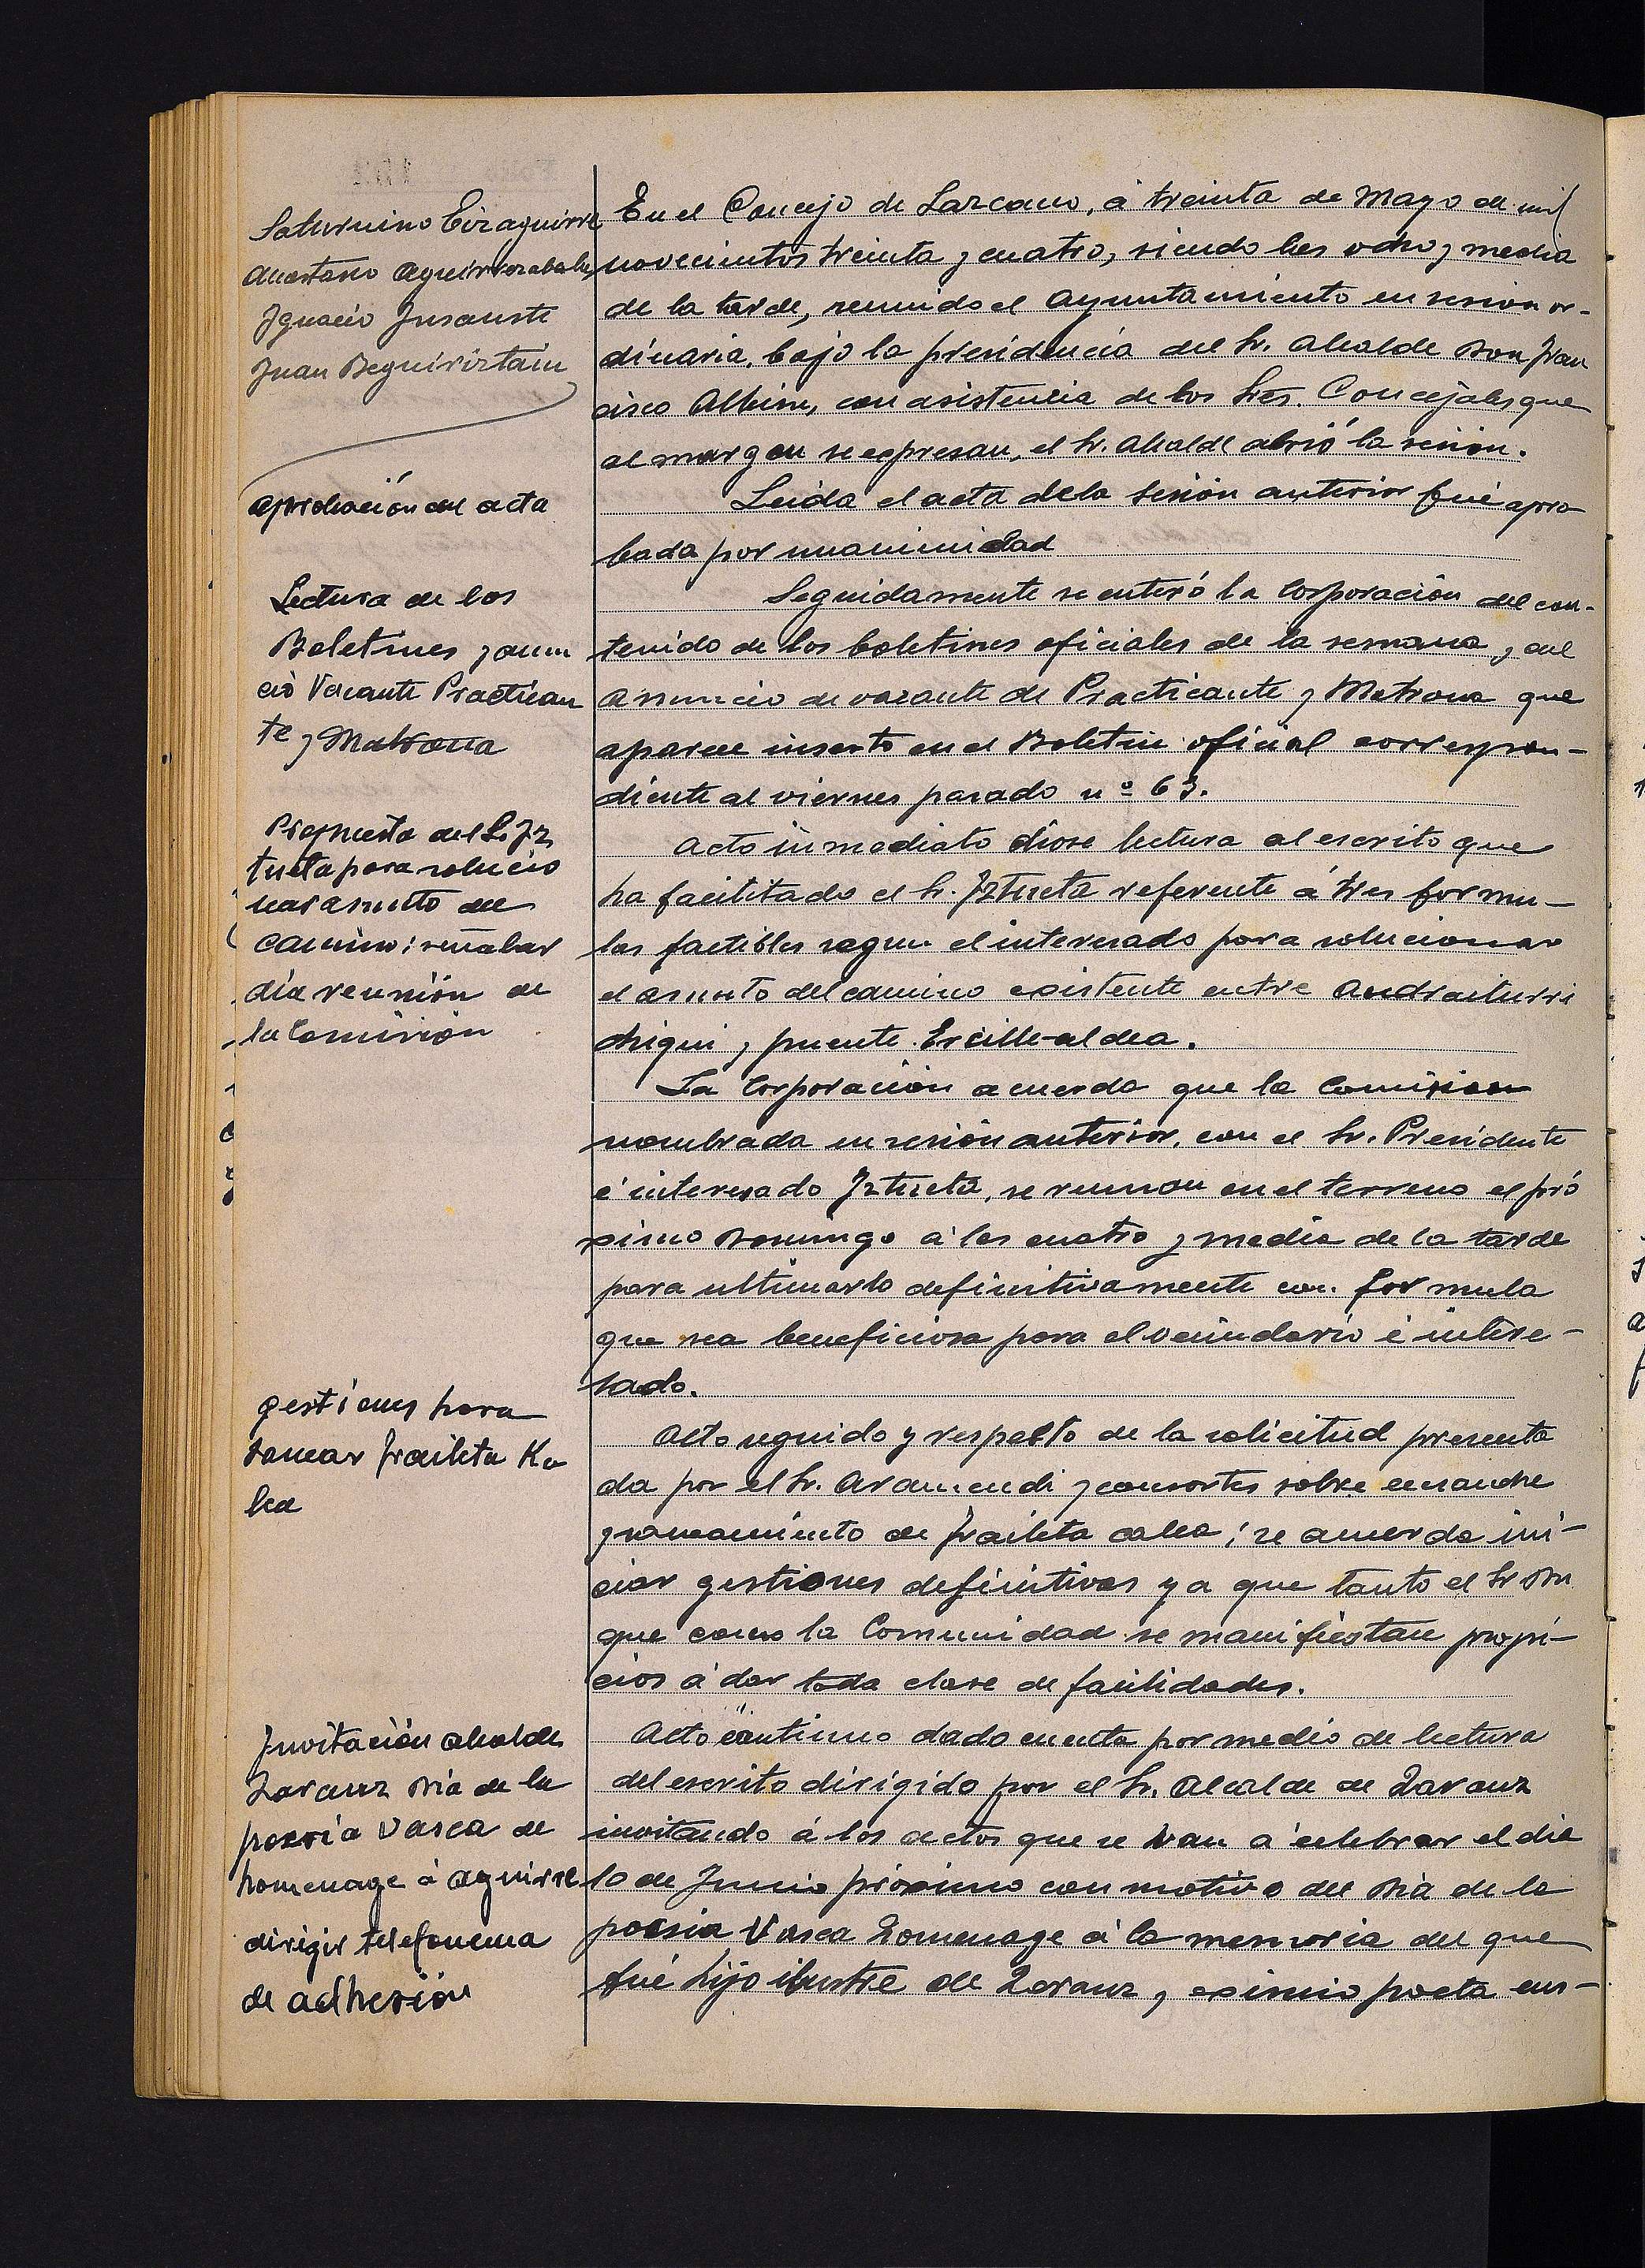 Saturnino Eizaguirre
Anastasio Aguirrezabala
Ignacio Insausti
Juan Beguiristain
En el Concejo de Lazcano, á treinta de Mayo de mil
novecientos treinta y cuatro, siendo las ocho y media
de la tarde, reunido el Ayuntamiento en sesion or-
dinaria, bajo la presidencia del Sr. Alcalde Don Fran
cisco Albisu, con asistencia de los Sres. Concejales que
al margen se expresan, el Sr. Alcalde abrió la sesión.
Aprobación del acta
Leida el acta de la sesión anterior fué apro-
bada por unanimidad
Lectura de los
Boletines y anun
cio Vacante Practican
te y Matrona
Seguidamente se enteró la Corporación del con-
tenido de los boletines oficiales de la semana y del
anuncio de vacante de Practicante y Matrona que
aparece inserto en el Boletin oficial correspon-
diente al viernes pasado nº 63.
Propuesta del Sr. Iz
tueta para solucio
nar asunto del
camino: señalar
día reunión de
la Comisión
Acto inmediato dióse lectura al escrito que
ha facilitado el Sr. Iztueta referente á tres formu-
las factibles segun el interesado para solucionar
el asunto del camino existente entre Andraiturri
chiqui y puente Ercille-aldea.
La Corporación acuerda que la Comision
nombrada en sesión anterior, con el Sr. Presidente
é interesado Iztueta, se reunan en el terreno el pró
ximo Domingo á las cuatro y media de la tarde
para ultimarlo definitivamente con formula
que sea beneficiosa para el vecindario é intere-
sado.
Gestiones para
sanear fraileta Ka
lea
Acto seguido y respecto de la solicitud presenta
da por el Sr. Aramendi y consortes sobre ensanche
y saneamiento de fraileta calea; se acuerda ini-
ciar gestiones definitivas ya que tanto el Sr Du
que como la Comunidad se manifiestan propi-
cios á dar toda clase de facilidades.
Invitación alcalde
Zarauz Dia de la
poesía Vasca de
homenage á Aguirre
dirigir telefonema
de adhesión
Acto continuo dado cuenta por medio de lectura
del escrito dirigido por el Sr. Alcalde de Zarauz
invitando á los actos que se van á celebrar el dia
10 de Junio próximo con motivo del Dia de la
poesia Vasca homenage á la memoria del que
fué hijo ilustre de Zarauz y eximio poeta eus-